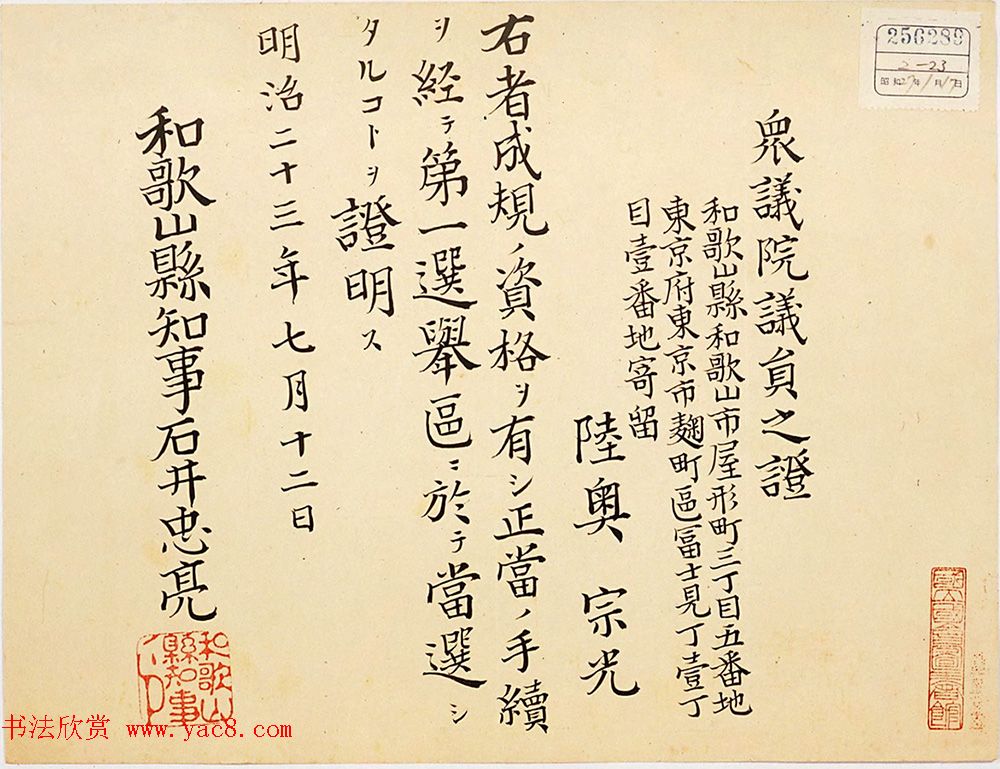 衆議院議員之證
和歌山縣和歌山市屋形町三丁目五番地
東京府東京市麹町區冨士見丁壹丁
目壹番地寄留
陸奥宗光
右者成規ノ資格ヲ有シ正當ノ手續
ヲ経テ第一選擧區ニ於テ當選シ
タルコトヲ證明ス
明治二十三年七月十二日
和歌山縣知事石井忠亮
和歌山
縣知事
256289
2-23
昭和27年1月17日
书法欣赏 www.yac8.com